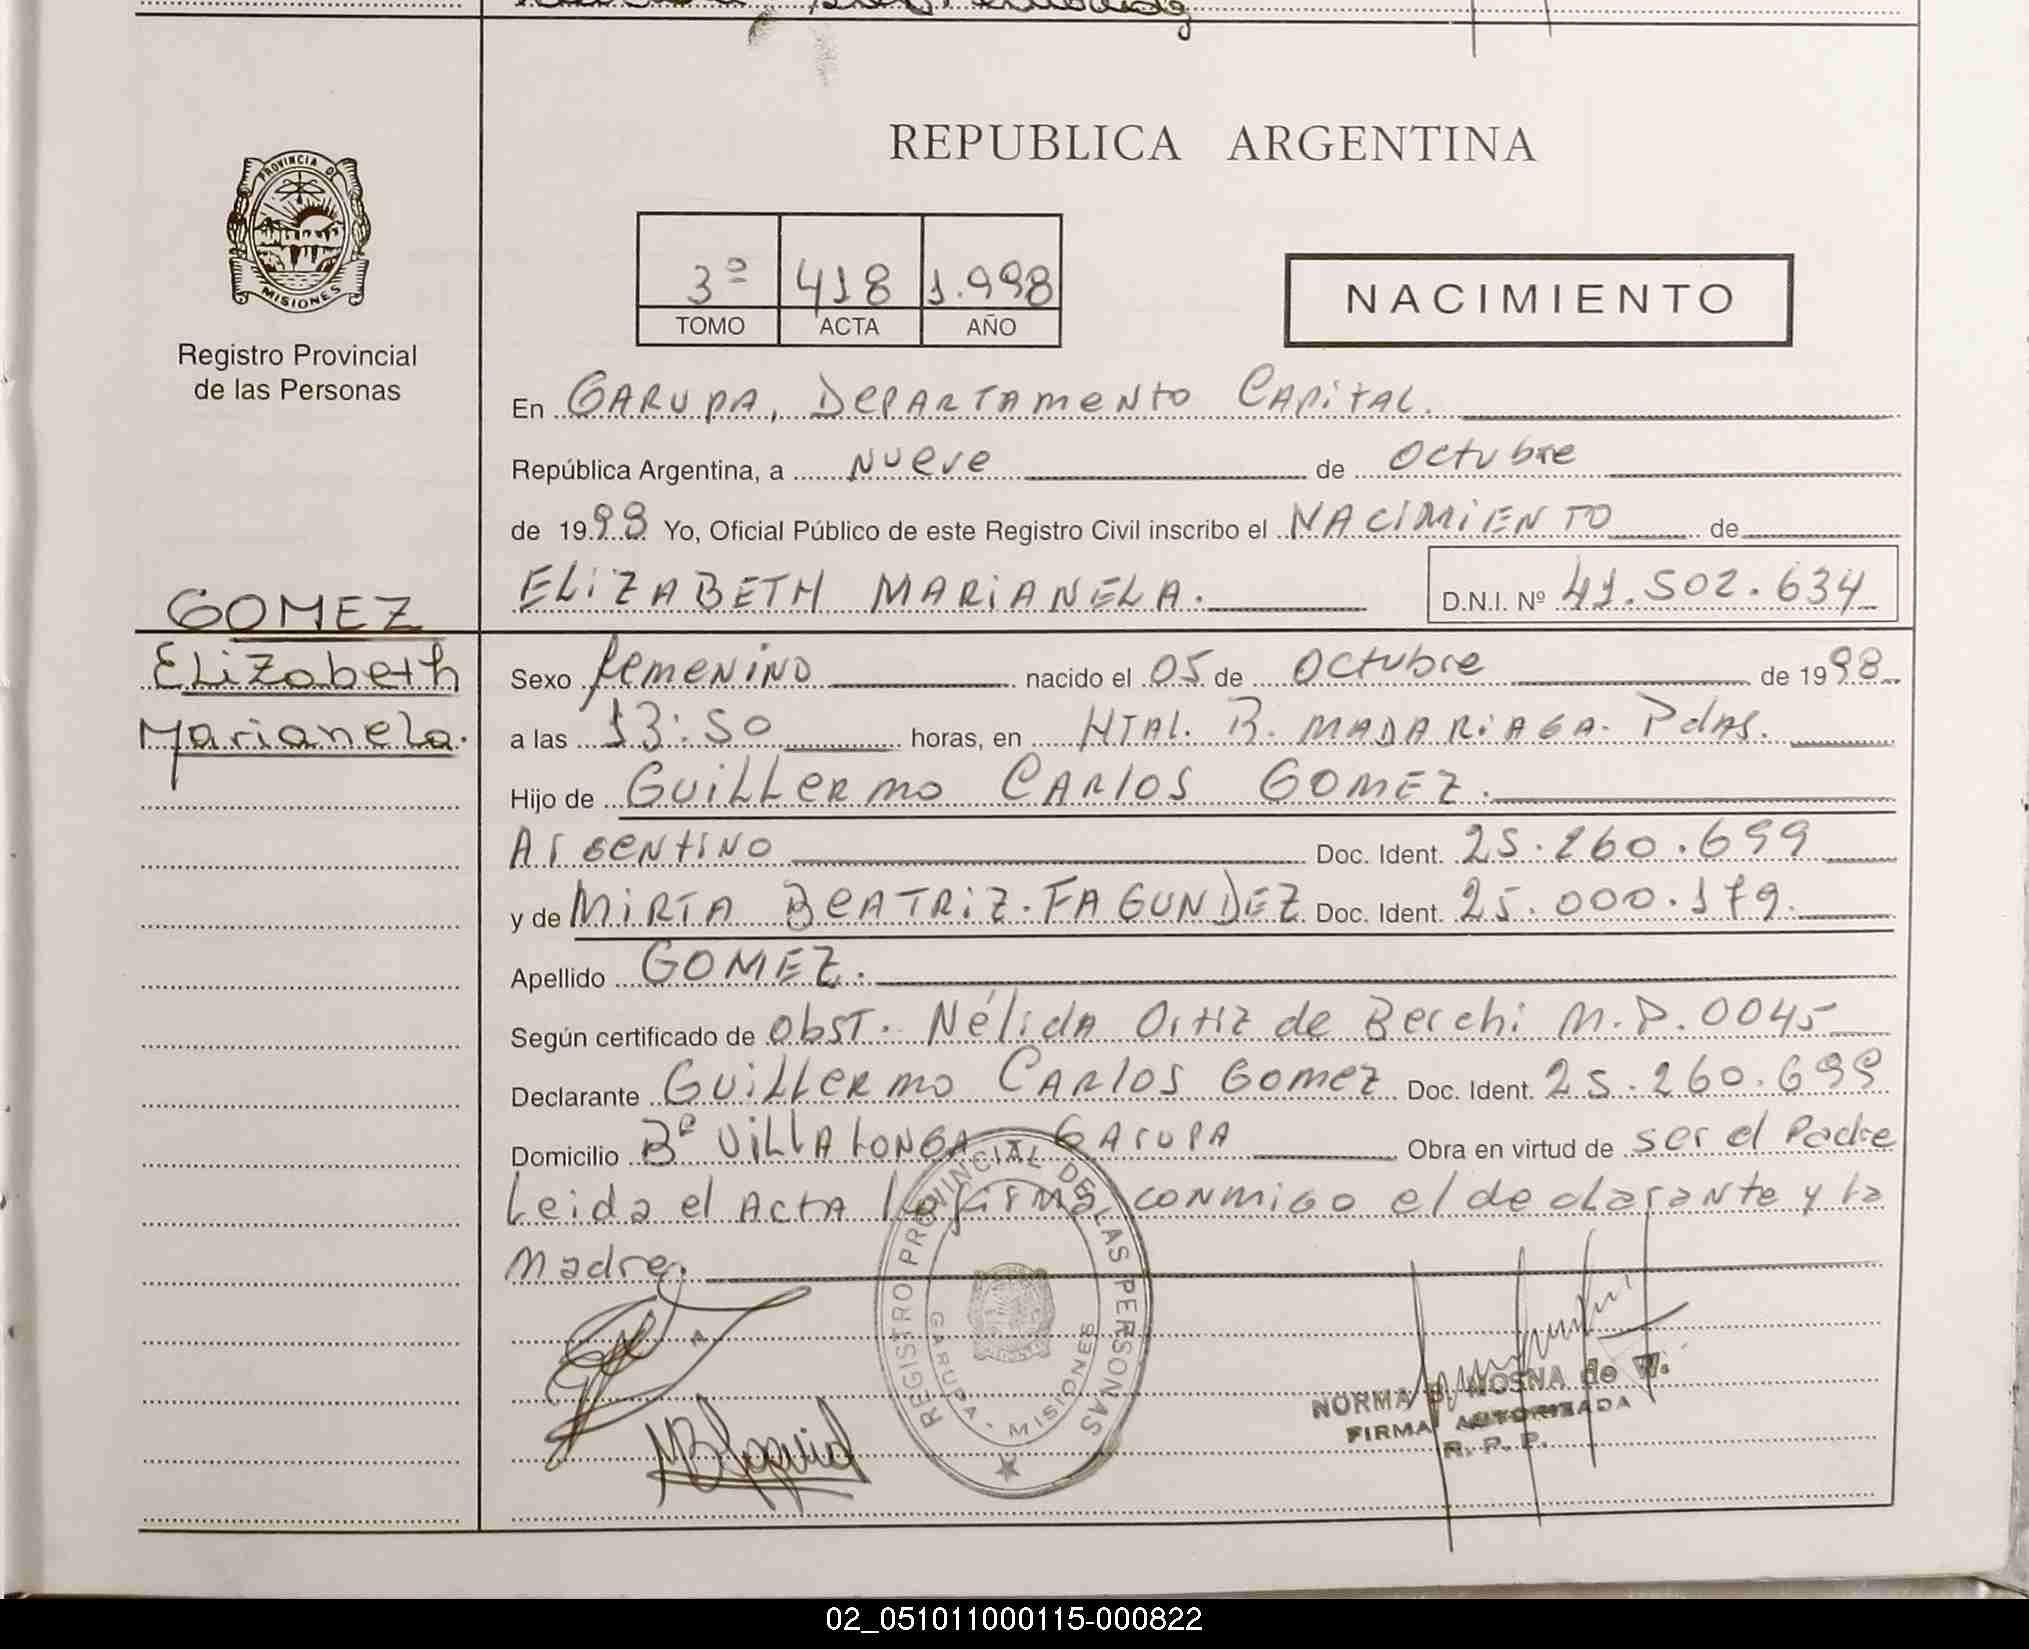 REPUBLICA ARGENTINA
PROVINCIA DE
MISIONES
Registro Provincial
de las Personas
3º 418 1.998
TOMO ACTA AÑO
NACIMIENTO
En GARUPA, DEPARTAMENTO CAPITAL.
República Argentina, a NUEVE de Octubre
de 1998 Yo, Oficial Público de este Registro Civil inscribo el NACIMIENTO de
ELIZABETH MARIANELA. D.N.I. Nº 41.502.634
GOMEZ
Elizabeth
Marianela.
Sexo femenino nacido el 05 de Octubre de 1998
a las 13:50 horas, en HTAL. R. MADARIAGA. Pdas.
Hijo de Guillermo Carlos GOMEZ.
Argentino Doc. Ident. 25.260.699
y de MIRTA BEATRIZ. FAGUNDEZ Doc. Ident. 25.000.179.
Apellido GOMEZ.
Según certificado de obst. Nélida Ortiz de Berchi M.P. 0045
Declarante Guillermo Carlos Gomez Doc. Ident. 25.260.699
Domicilio Bº Villalonga Garupa Obra en virtud de ser el Padre
Leida el Acta la firma conmigo el declarante y la
Madre.
REGISTRO PROVINCIAL DE LAS PERSONAS
GARUPA - MISIONES
NORMA B. NOSNA de
FIRMA AUTORIZADA
R. P. P.
02_051011000115-000822